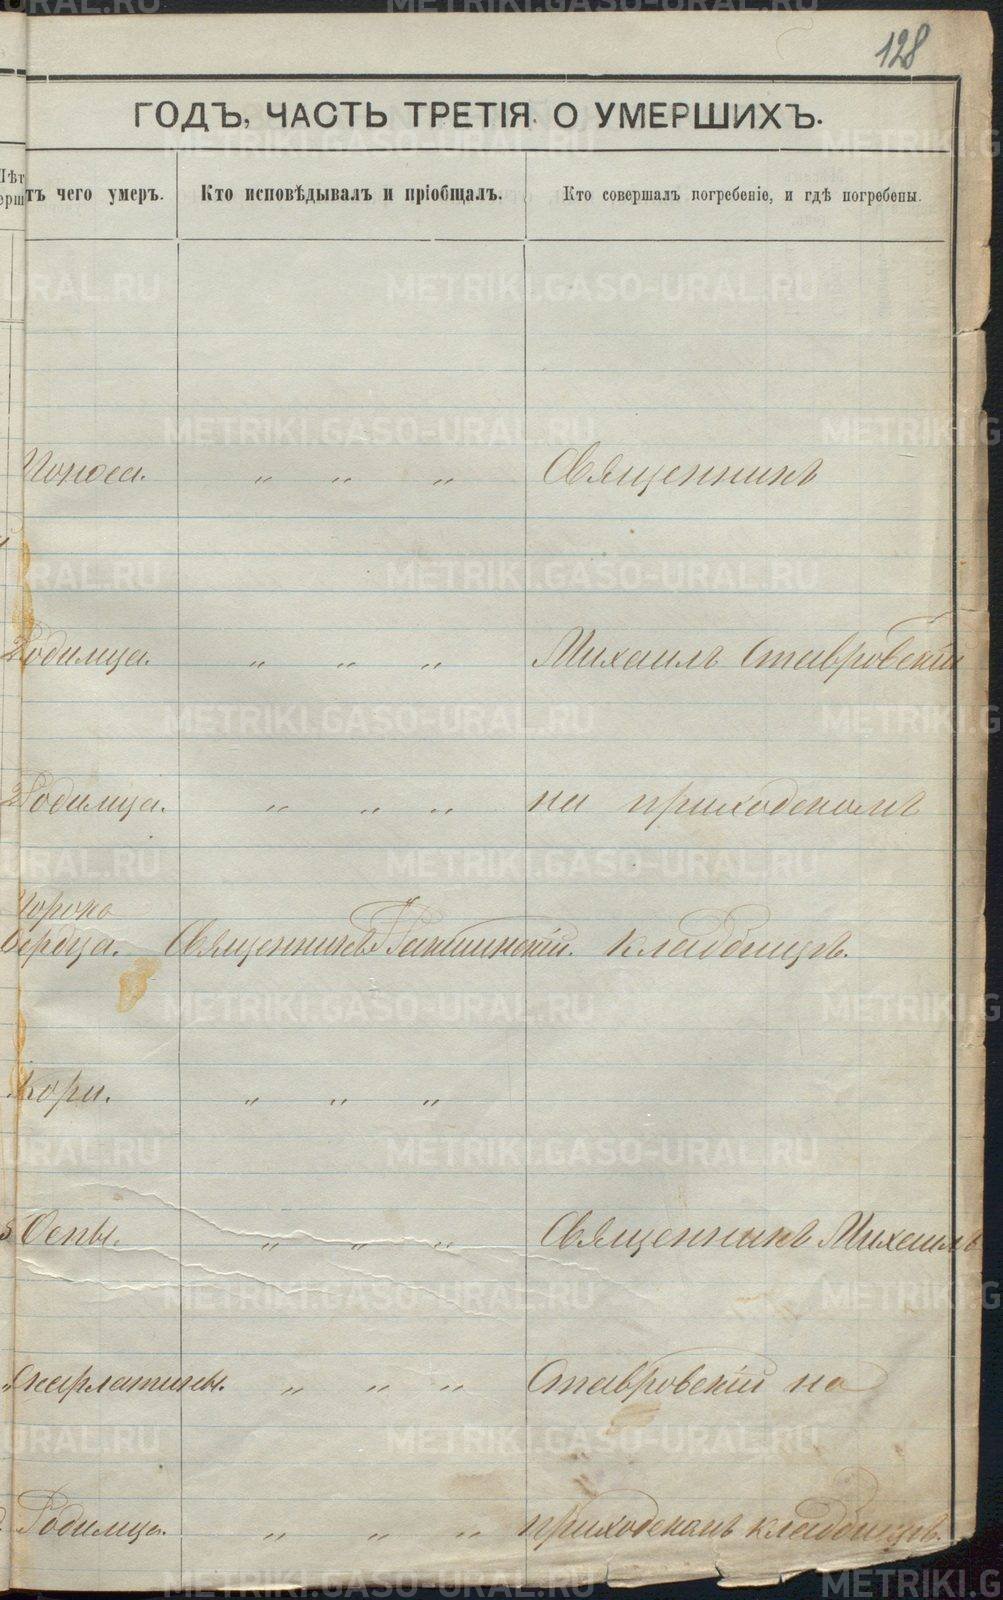 128
ГОДЪ, ЧАСТЬ ТРЕТІЯ. О УМЕРШИХЪ.
тъ чего умеръ. Кто исповѣдывалъ и пріобщалъ. Кто совершалъ погребеніе, и гдѣ погребены.
Поноса. " " " Священникъ
Родимца. " " " Михаилъ Ставровскій
Родимца. " " " на приходскомъ
Порока
Сердца. Священникъ кладбищѣ.
Кори. " " "
Оспы. " " " Священникъ Михаилъ
Скарлатины. " " " Ставровскій на
Родимца. " " " приходскомъ кладбищѣ.
METRIKI.GASO-URAL.RU